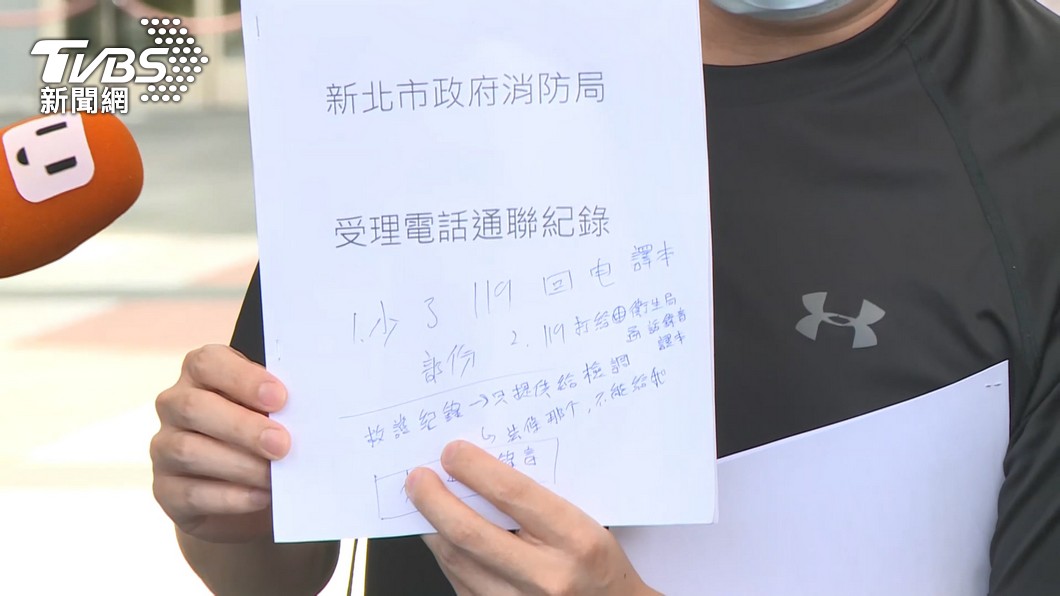 TVBS
新聞網
新北市政府消防局
受理電話通聯紀錄
1.少了 119 回电 譯本
部份
2. 119 打給 衛生局
通話錄音
譯本
救護紀錄→只提供給檢調
那个,不能給我
錄音